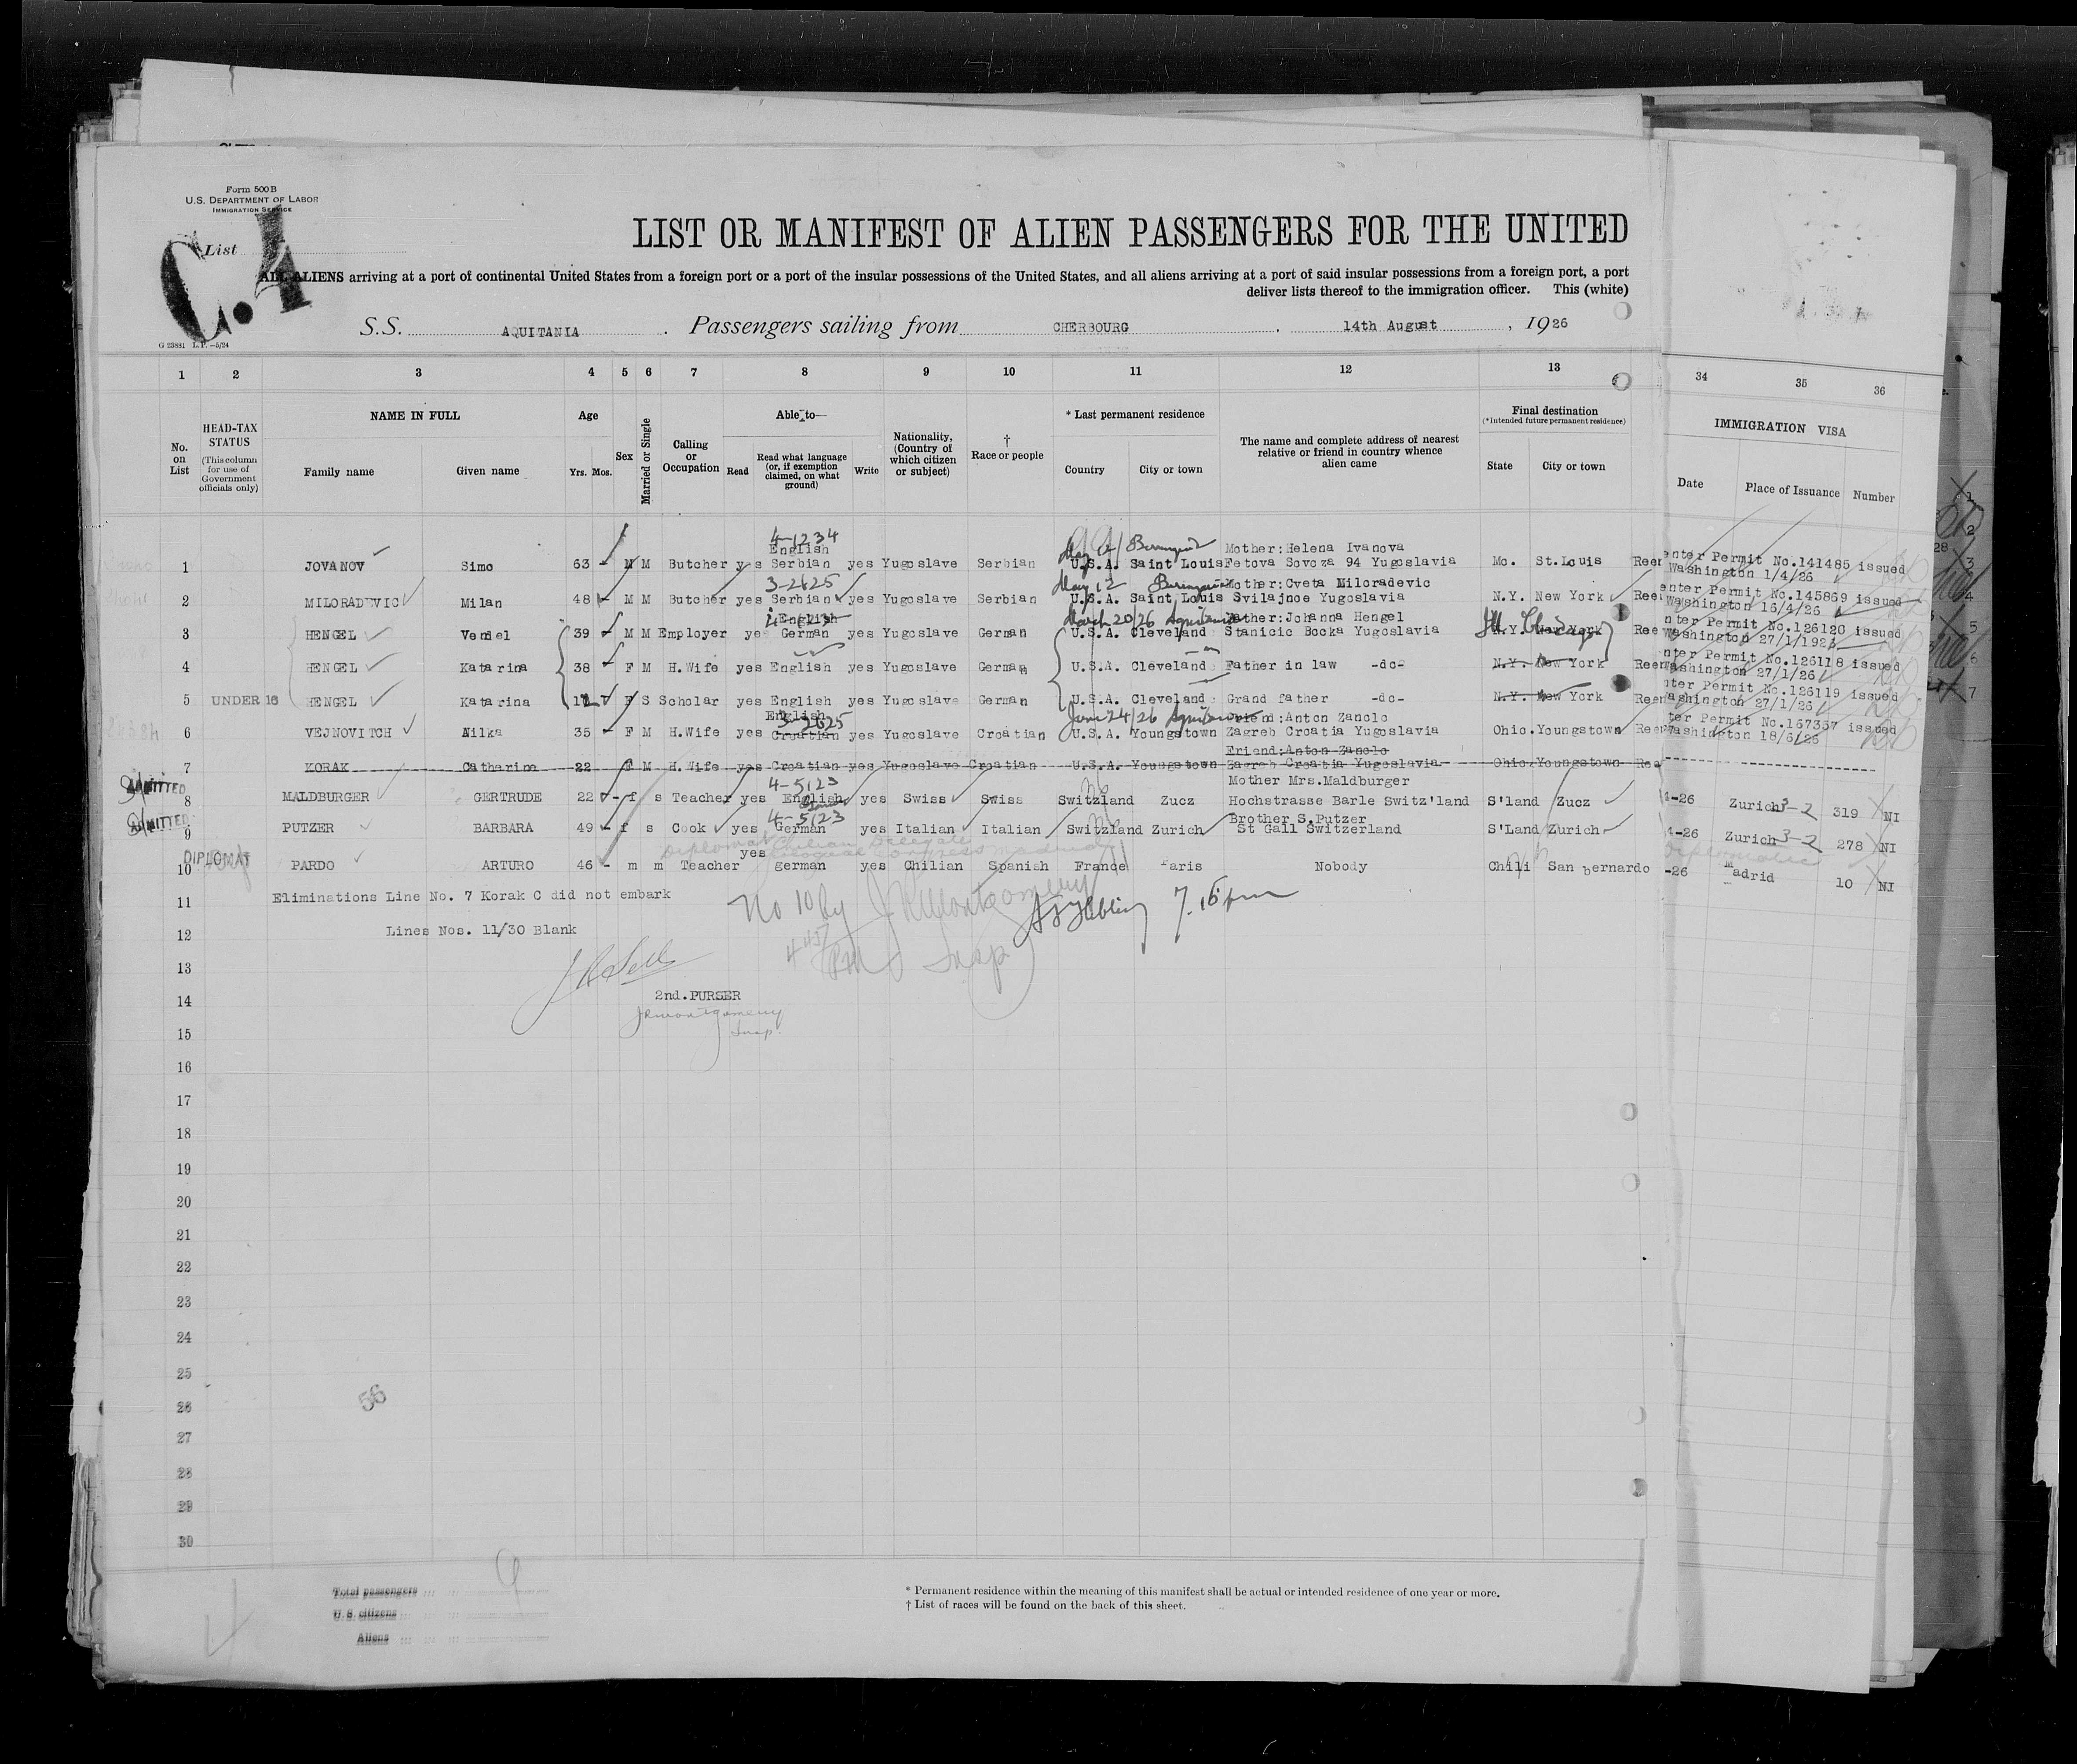 Form 500 B
U.S. DEPARTMENT OF LABOR
IMMIGRATION SERVICE
List
C.4
LIST OR MANIFEST OF ALIEN PASSENGERS FOR THE UNITED
ALL ALIENS arriving at a port of continental United States from a foreign port or a port of the insular possessions of the United States, and all aliens arriving at a port of said insular possessions from a foreign port, a port
deliver lists thereof to the immigration officer. This (white)
S.S. AQUITANIA. Passengers sailing from CHERBOURG, 14th August, 1926
G 23881 L.P.—5/24
1 2 3 4 5 6 7 8 9 10 11 12 13 34 35 36
No. on List
HEAD-TAX STATUS (This column for use of Government officials only)
NAME IN FULL Family name Given name
Age Yrs. Mos.
Sex
Married or Single
Calling or Occupation
Able to— Read Read what language (or, if exemption claimed, on what ground) Write
Nationality, (Country of which citizen or subject)
† Race or people
* Last permanent residence Country City or town
The name and complete address of nearest relative or friend in country whence alien came
Final destination (*Intended future permanent residence) State City or town
IMMIGRATION VISA Date Place of Issuance Number
4-1234 English May 4/ Mother:Helena Ivanova
1 JOVANOV Simo 63 M M Butcher yes Serbian yes Yugoslave Serbian U.S.A. Saint Louis Fetova Sovoza 94 Yugoslavia Mo. St.Louis Reenter Permit No.141485 issued Washington 1/4/26
3-2625 May 12 Mother:Cveta Miloradevic
2 MILORADEVIC Milan 48 M M Butcher yes Serbian yes Yugoslave Serbian U.S.A. Saint Louis Svilajnoe Yugoslavia N.Y. New York Reenter Permit No.145869 issued Washington 16/4/26
English March 20/26 Aquitania Johanna Hengel Ill Chicago
3 HENGEL Vendel 39 M M Employer yes German yes Yugoslave German U.S.A. Cleveland Stanicic Bocka Yugoslavia N.Y. New York Reenter Permit No.126120 issued Washington 27/1/192
4 HENGEL Katarina 38 F M H.Wife yes English yes Yugoslave German U.S.A. Cleveland Father in law -do- N.Y. New York Reenter Permit No.126118 issued Washington 27/1/26
5 UNDER 16 HENGEL Katarina 12 F S Scholar yes English yes Yugoslave German U.S.A. Cleveland Grand father -do- N.Y. New York Reenter Permit No.126119 issued Washington 27/1/26
English 3-2625 June 24/26 Aquitania Friend:Anton Zanolo
6 VEJNOVITCH Milka 35 F M H.Wife yes Croatian yes Yugoslave Croatian U.S.A. Youngstown Zagreb Croatia Yugoslavia Ohio. Youngstown Reenter Permit No.167357 issued Washington 18/6/26
Friend:Anton Zanolo
7 KORAK Catharina 22 f M H.Wife yes Croatian yes Yugoslave Croatian U.S.A. Youngstown Zagreb Croatia Yugoslavia Ohio. Youngstown Ree
ADMITTED 4-5123 Mother Mrs.Maldburger
8 MALDBURGER GERTRUDE 22 f s Teacher yes English yes Swiss Swiss Switzland Zucz Hochstrasse Barle Switz'land S'land Zucz 4-26 Zurich 3-2 319 NI
ADMITTED 4-5123 Brother S.Putzer
9 PUTZER BARBARA 49 f s Cook yes German yes Italian Italian Switzland Zurich St Gall Switzerland S'Land Zurich 4-26 Zurich 3-2 278 NI
DIPLOMAT Diplomat Chilian Delegate
10 PARDO ARTURO 46 m m Teacher yes german yes Chilian Spanish France Paris Nobody Chili San bernardo -26 Madrid 10 NI
11 Eliminations Line No. 7 Korak C did not embark No 10 by J R Montgomery 7.15 pm
12 Lines Nos. 11/30 Blank Insp
13
14 2nd.PURSER
JRMontgomery
15 Insp.
16
17
18
19
20
21
22
23
24
25
56
26
27
28
29
30
Total passengers 9
U.S. citizens
Aliens
* Permanent residence within the meaning of this manifest shall be actual or intended residence of one year or more.
† List of races will be found on the back of this sheet.